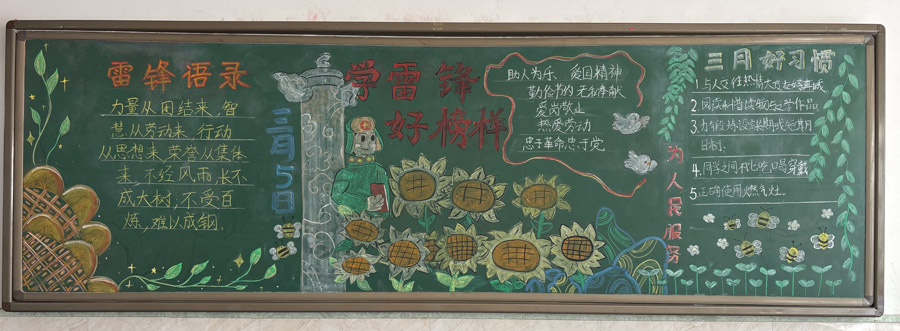 雷锋语录
力量从团结来，智
慧从劳动来，行动
从思想来，荣誉从集体
来，不经风雨，长不
成大树，不受百
炼，难以成钢．
三月5日
学雷锋
好榜样
助人为乐、爱国精神
勤俭节约 无私奉献
爱岗敬业
热爱劳动
忠于革命忠于党
为人民服务
三月 好习惯
1.与人交往热情大方
2.阅读 文学作品
3.为
目标．
4.同学之间不比吃、喝、穿戴
5.正确使用燃气灶．